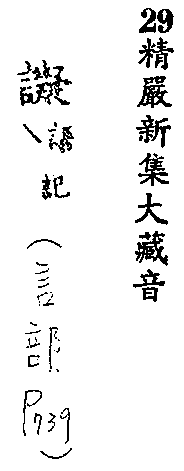 29精嚴新集大藏音
譺
\語記
(言部P739)